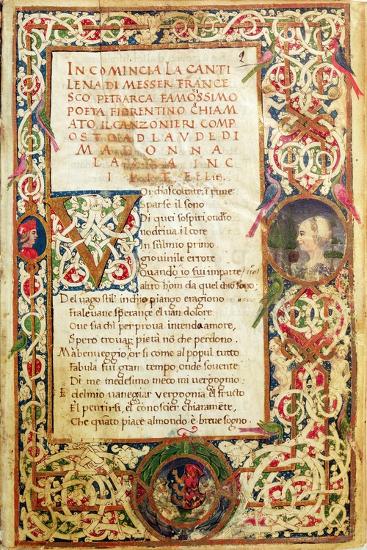 INCOMINCIA LA CANTI
LENA DI MESSER FRANCE
SCO PETRARCA FAMOSSIMO
POETA FIORENTINO CHIAM
ATO IL CANZONIERI COMP
OSTO AD LAUDE DI
MADONNA
LAURA INC
IPIT FELIC
VOi chascoltate, i rime
sparse il sono
Di quei sospiri, ondio
nodriva il core
In sulmio primo
giovinile errore
Quando io fui imparte
altro hom da quel
Del vago stil' inchio piango eragiono
Fralevane speranze el van dolore
Ove sia chi per prova intenda amore,
Spero trovar pieta nō che perdono.
Ma benveggio, or si come al popul tutto
Fabula fui gran tempo, onde sovente
Di me medesimo meco mi vergogno.
E delmio vaneggiar vergogna el frutto
El pentirsi, el conoscer chiaramēte,
Che quāto piace almondo è breve sogno.